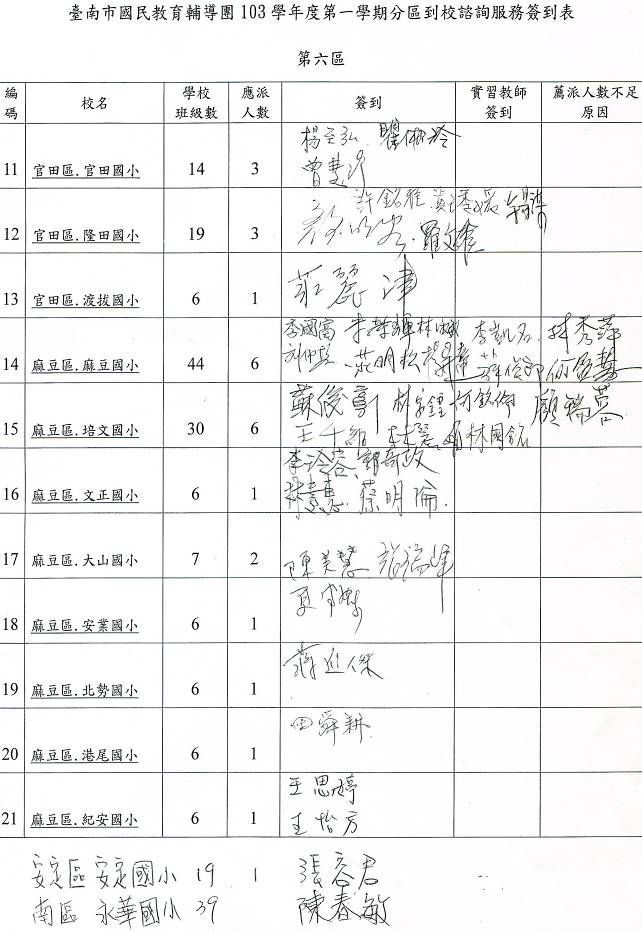 臺南市國民教育輔導團 103 學年度第一學期分區到校諮詢服務簽到表
第六區
編碼 校名 學校班級數 應派人數 簽到 實習教師簽到 薦派人數不足原因
11 官田區.官田國小 14 3 楊至弘
曾慧
12 官田區.隆田國小 19 3 許銘雅 羅文
13 官田區.渡拔國小 6 1 莊麗津
14 麻豆區.麻豆國小 44 6 李國富 李凱名 林秀萍
莊明松
15 麻豆區.培文國小 30 6 蘇俊 何銘 顧瑞蓉
林國銘
16 麻豆區.文正國小 6 1 李玲蓉
林素惠 蔡明倫
17 麻豆區.大山國小 7 2 陳美慧
18 麻豆區.安業國小 6 1 夏
19 麻豆區.北勢國小 6 1 蔣進傑
20 麻豆區.港尾國小 6 1 田舜耕
21 麻豆區.紀安國小 6 1 王思婷
王怡方
安定區 安定國小 19 1 張容君
南區 永華國小 39 陳春敏